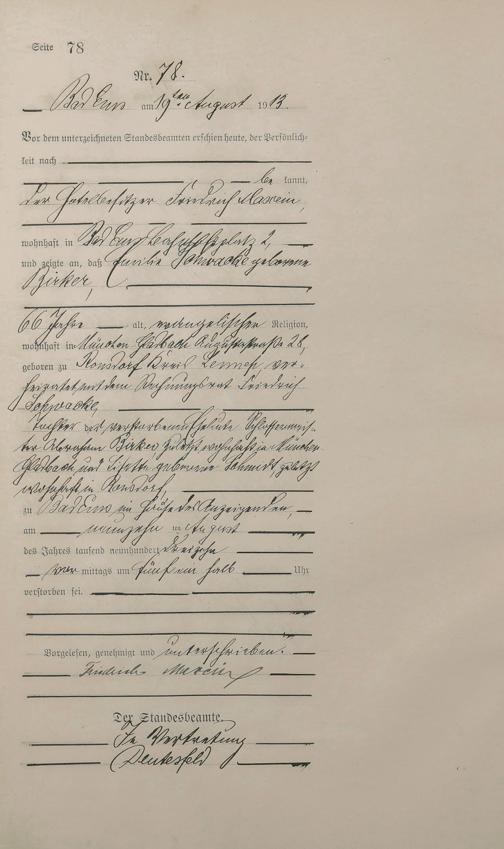 Seite 78
Nr. 78.
Bad Ems am 19ten August 1913.
Vor dem unterzeichneten Standesbeamten erschien heute, der Persönlich-
keit nach
be kannt,
der Hotelbesitzer Friedrich
wohnhaft in Bad Ems Bahnhofsplatz 2,
und zeigte an, daß Emilie Schwacke geborene
Birker,
66 Jahre alt, evangelischer Religion,
wohnhaft in München Gladbach Augustastraße 28,
geboren zu Ronsdorf Kreis Lennep, ver-
heiratet mit dem Rechnungsrat Friedrich
Schwacke,
Tochter der verstorbenen Eheleute
ter Abraham Birker zuletzt wohnhaft in München
Gladbach und Lisette geborene Schmidt zuletzt
wohnhaft in Ronsdorf,
zu Bad Ems im Hause des Anzeigenden,
am neunzehn ten August
des Jahres tausend neunhundert dreizehn
vor mittags um fünf ein halb Uhr
verstorben sei.
Vorgelesen, genehmigt und unterschrieben.
Friedrich
Der Standesbeamte.
In Vertretung